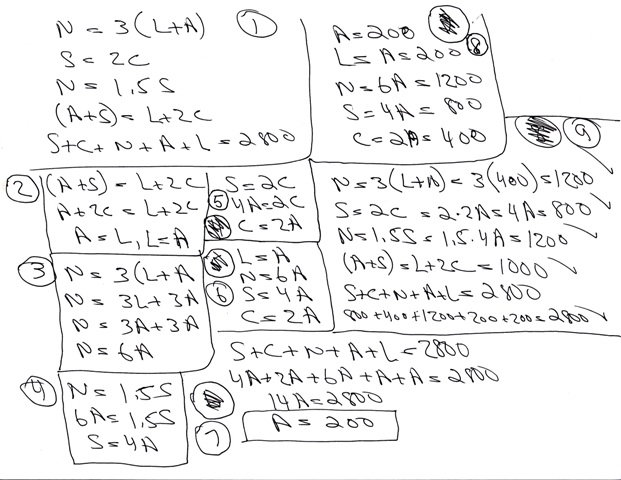 1
N = 3(L+A)
S = 2C
N = 1.5S
(A+S) = L+2C
S+C+N+A+L = 2800
2
(A+S) = L+2C
A+2C = L+2C
A = L, L = A
3
N = 3(L+A
N = 3L+3A
N = 3A+3A
N = 6A
4
N = 1.5S
6A = 1.5S
S = 4A
5
S = 2C
4A = 2C
C = 2A
6
L = A
N = 6A
S = 4A
C = 2A
7
S+C+N+A+L = 2800
4A+2A+6A+A+A = 2800
14A = 2800
A = 200
8
A = 200
L = A = 200
N = 6A = 1200
S = 4A = 800
C = 2A = 400
9
N = 3(L+A) = 3(400) = 1200
S = 2C = 2·2A = 4A = 800
N = 1.5S = 1.5·4A = 1200
(A+S) = L+2C = 1000
S+C+N+A+L = 2800
800+400+1200+200+200 = 2800